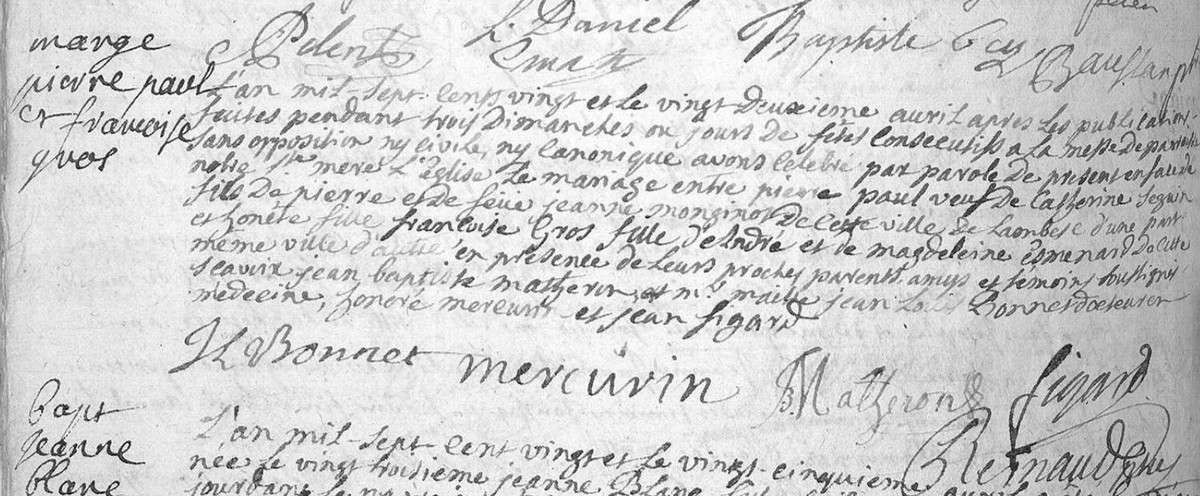 L. Daniel
Baptiste
marge
pierre paul
et francoise
gros
L'an mil-sept-cent vingt et le vingt deuxieme avril apres les publications
faites pendant trois Dimanches ou jours de fetes consecutifs a la messe de paroisse
sans opposition ny civile, ny canonique avons celebré par parole de present en face de
notre Ste mere L'eglise Le mariage entre pierre paul veuf de Catherine Seguin
fils de pierre et de feue jeanne monginot de cette ville de Lambesc d'une part
et honête fille françoise Gros fille d'André et de magdeleine esmenard de cette
même ville d'autre en presence de Leurs proches parents amys et temoins soussignes
scavoir jean baptiste matheron, et mr maitre jean Louis Bonnet docteur en
medecine, honore mercurin et jean figard
JL Bonnet mercurin B. Matheron figard
Reynaud
bapt
jeanne
blanc
L'an mil-sept-cent vingt et le vingt-cinquieme
née le vingt troisieme jeanne Blanc